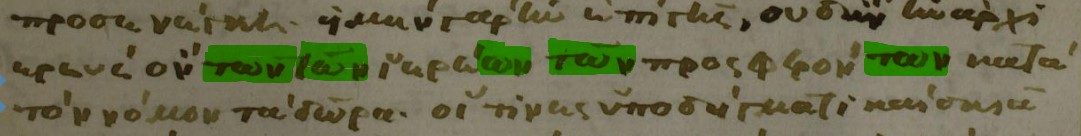 προσενέγκη. εἰ μὲν γὰρ ἦν ἐπὶ γῆς, οὐδ' ἂν ἦν ἀρχι
ερεύς ὄντων τῶν ἱερέων τῶν προσφερόντων κατὰ
τὸν νόμον τὰ δῶρα. οἵτινες ὑποδείγματι καὶ σκιᾶ